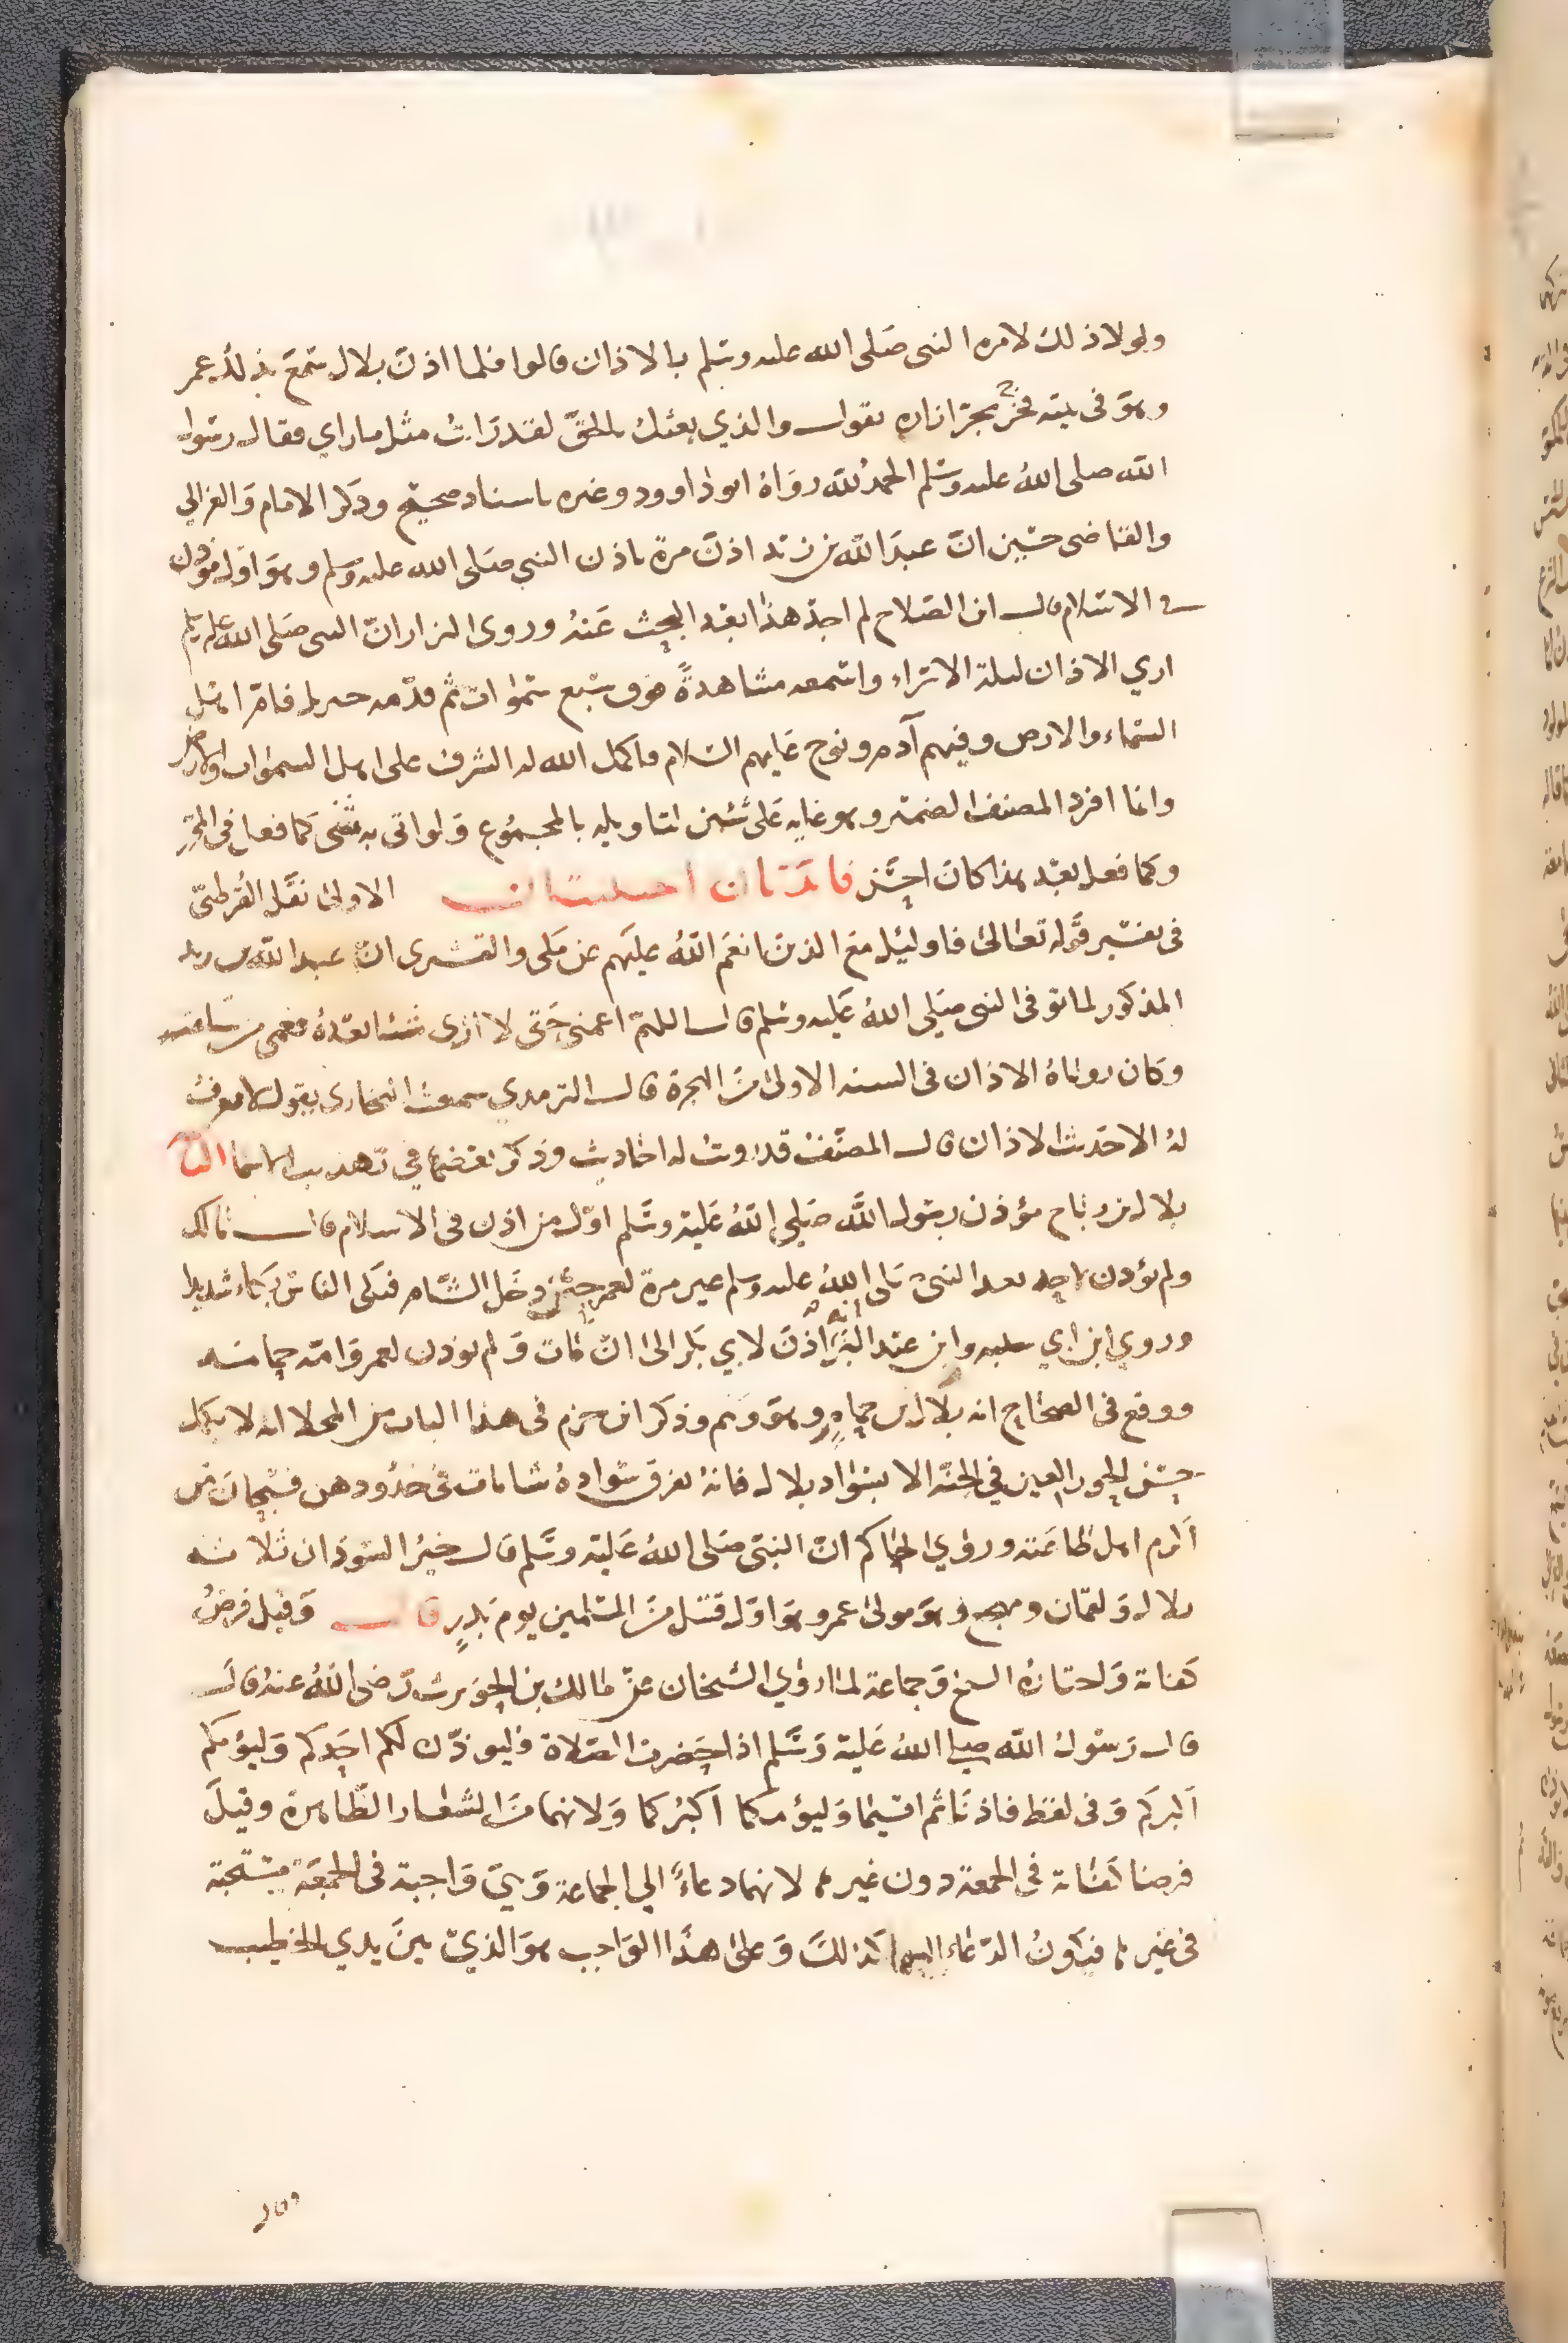 ولولا ذلك لامره النبي صلى الله عليه وسلم بالاذان قالوا فلما اذن بلال سمع بذلك عمر
وهو في بيته فخرج يجر ازاره يقول والذي بعثك بالحق لقد رايت مثل ما راي فقال رسول
الله صلى الله عليه وسلم الحمد لله رواه ابو داوود وغيره باسناد صحيح وذكر الامام والغزالي
والقاضي حسين ان عبد الله بن زيد اذن مرة باذن النبي صلى الله عليه وسلم وهو اول موذن
في الاسلام قال ابن الصلاح لم اجد هذا بعد البحث عنه وروى البزار ان النبي صلى الله عليه وسلم
اري الاذان ليلة الاسراء واسمعه مشاهدة فوق سبع سموات ثم قدمه جبريل فام اهل
السماء والارض وفيهم آدم ونوح عليهم السلام فاكمل الله له الشرف على اهل السموات والارض
وانما افرد المصنف الضمير وهو عايد على شيئين لتاويله بالمجموع ولو اتى به مثنى كما فعل في المحرر
وكما فعل بعد هذا كان احسن فائدتان احسنتان الاولى نقل القرطبي
في تفسير قوله تعالى فاوليك مع الذين انعم الله عليهم عن مكي والقشيري ان عبد الله بن زيد
المذكور لما توفي النبي صلى الله عليه وسلم قال اللهم اعمني حتى لا ارى شيئا بعده فعمي من ساعته
وكان رؤياه الاذان في السنة الاولى من الهجرة قال الترمدي سمعت البخاري يقول لا يعرف
له الا حديث الاذان قال المصنف قد رويت له احاديث وذكر بعضها في تهذيب الاسما الثانية
بلال بن رباح مؤذن رسول الله صلى الله عليه وسلم اول من اذن في الاسلام قال مالك
ولم يؤذن لاحد بعد النبي صلى الله عليه وسلم غير مرة لعمر حين دخل الشام فبكى الناس بكاء شديدا
وروي ابن ابي شيبه وابن عبد البر انه اذن لابي بكر الى ان مات ولم يؤذن لعمر وامه حمامه
ووقع في الصحاح انه بلال بن حمامه وهو وهم وذكر ابن حزم في هذا الباب من المحلا انه لا يكمل
حسن الحور العين في الجنة الا بسواد بلال فانه يفرق سواده شامات في خدودهن فسبحان من
اكرم اهل طاعته وروي الحاكم ان النبي صلى الله عليه وسلم قال خير السودان ثلاثه
بلال ولقمان ومهجع وهو مولى عمر وهو اول قتيل من المسلمين يوم بدر قال وقيل فرض
كفاية واختاره السبكي وجماعة لما روي الشيخان عن مالك بن الحويرث رضي الله عنه قال
قال رسول الله صلى الله عليه وسلم اذا حضرت الصلاة فليوذن لكم احدكم وليؤمكم
اكبركم وفي لفظ فاذنا ثم اقيما وليؤمكما اكبركما ولانهما من الشعار الظاهرة وقيل
فرضا كفاية في الجمعة دون غيرها لانهما دعاء الي الجماعة وهي واجبة في الجمعة مستحبة
في غيرها فيكون الدعاء اليها كذلك وعلى هذا الواجب هو الذي بين يدي الخطيب